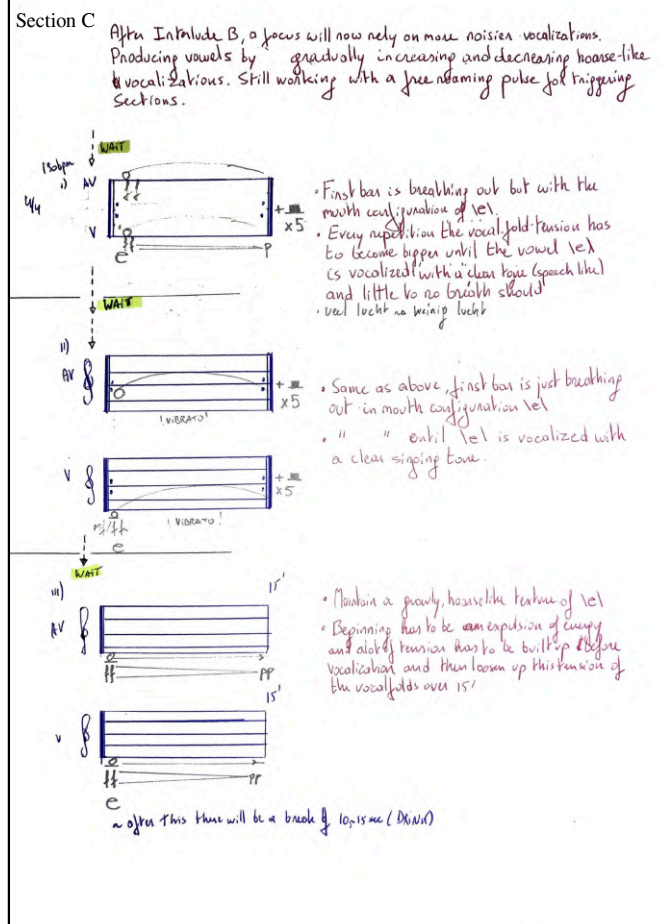 Section C
After Interlude B, a focus will now rely on more noisier vocalizations.
Producing vowels by gradually increasing and decreasing hoarse-like
vocalizations. Still working with a free roaming pulse for triggering
Sections.
WAIT
150bpm
i) AV
4/4
ff
+
x5
V
ff
p
e
• First bar is breathing out but with the
mouth configuration of \e\
• Every repetition the vocal fold tension has
to become bigger until the vowel \e\
is vocalized with a clear tone (speech like)
and little to no breath should
• veel lucht → weinig lucht
WAIT
ii)
AV
+
x5
! VIBRATO!
• Same as above, first bar is just breathing
out in mouth configuration \e\
• " " until \e\ is vocalized with
a clear singing tone.
V
+
x5
mf/ff
! VIBRATO!
e
WAIT
iii)
15'
AV
ff
pp
• Maintain a growly, hoarselike texture of \e\
• Beginning has to be an expulsion of energy
and alot of tension has to be built up before
vocalization and then loosen up this tension of
the vocalfolds over 15'
15'
V
ff
pp
e
~ after this there will be a break of 10-15 sec (DRINK)